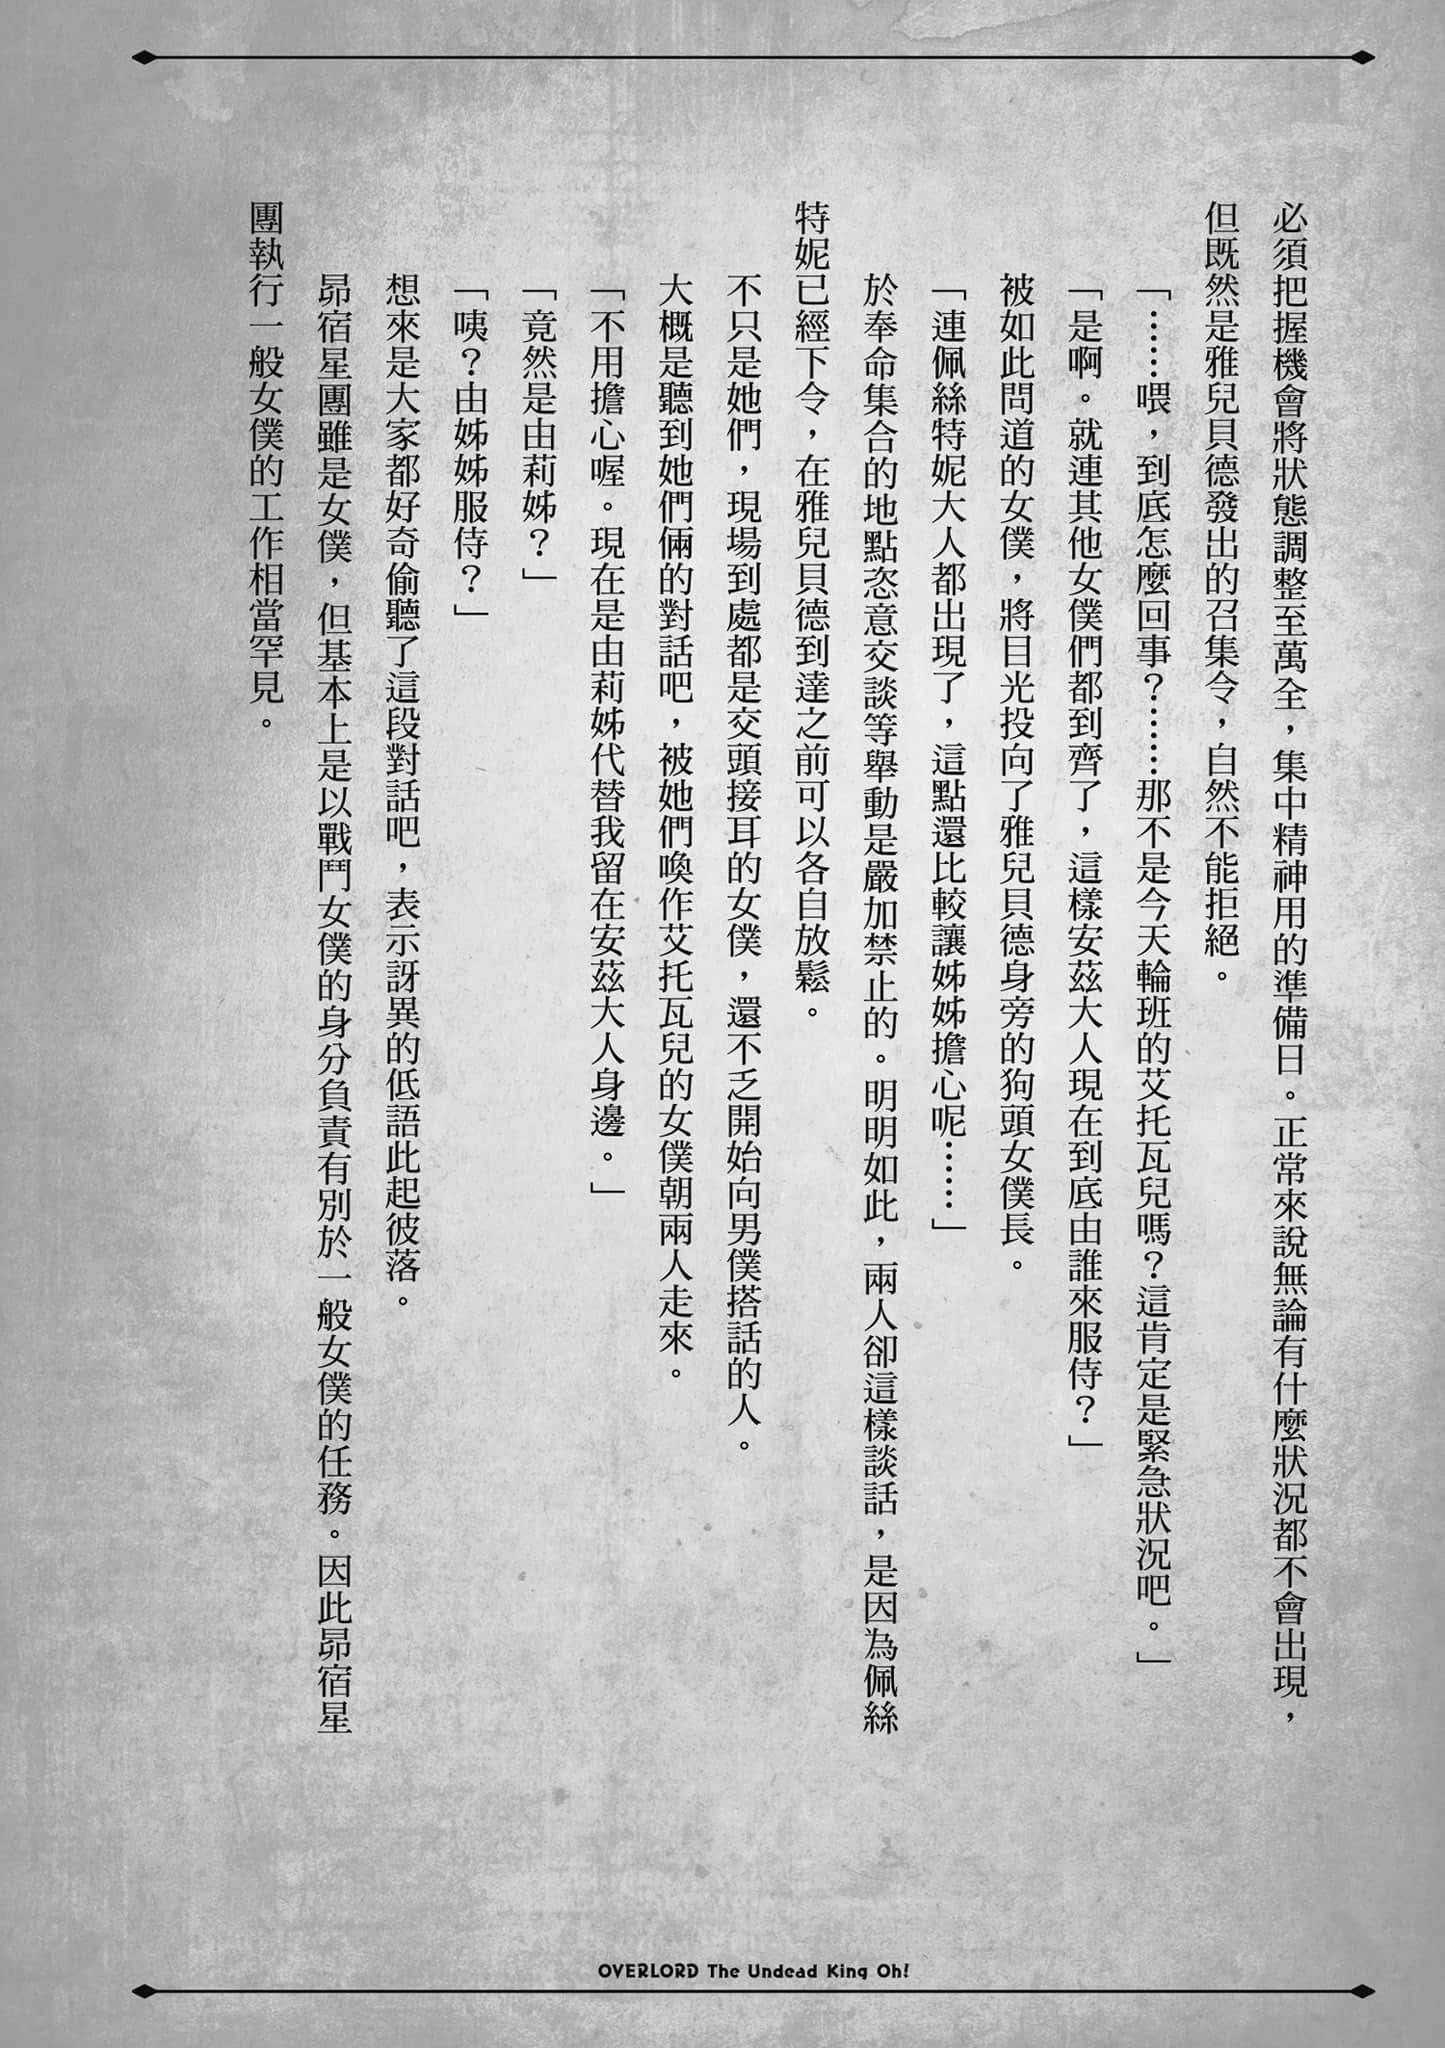 必須把握機會將狀態調整至萬全，集中精神用的準備日。正常來說無論有什麼狀況都不會出現，
但既然是雅兒貝德發出的召集令，自然不能拒絕。
「……喂，到底怎麼回事？……那不是今天輪班的艾托瓦兒嗎？這肯定是緊急狀況吧。」
「是啊。就連其他女僕們都到齊了，這樣安茲大人現在到底由誰來服侍？」
被如此問道的女僕，將目光投向了雅兒貝德身旁的狗頭女僕長。
「連佩絲特妮大人都出現了，這點還比較讓姊姊擔心呢……」
於奉命集合的地點恣意交談等舉動是嚴加禁止的。明明如此，兩人卻這樣談話，是因為佩絲
特妮已經下令，在雅兒貝德到達之前可以各自放鬆。
不只是她們，現場到處都是交頭接耳的女僕，還不乏開始向男僕搭話的人。
大概是聽到她們倆的對話吧，被她們喚作艾托瓦兒的女僕朝兩人走來。
「不用擔心喔。現在是由莉姊代替我留在安茲大人身邊。」
「竟然是由莉姊？」
「咦？由姊姊服侍？」
想來是大家都好奇偷聽了這段對話吧，表示訝異的低語此起彼落。
昴宿星團雖是女僕，但基本上是以戰鬥女僕的身分負責有別於一般女僕的任務。因此昴宿星
團執行一般女僕的工作相當罕見。
OVERLORD The Undead King Oh!